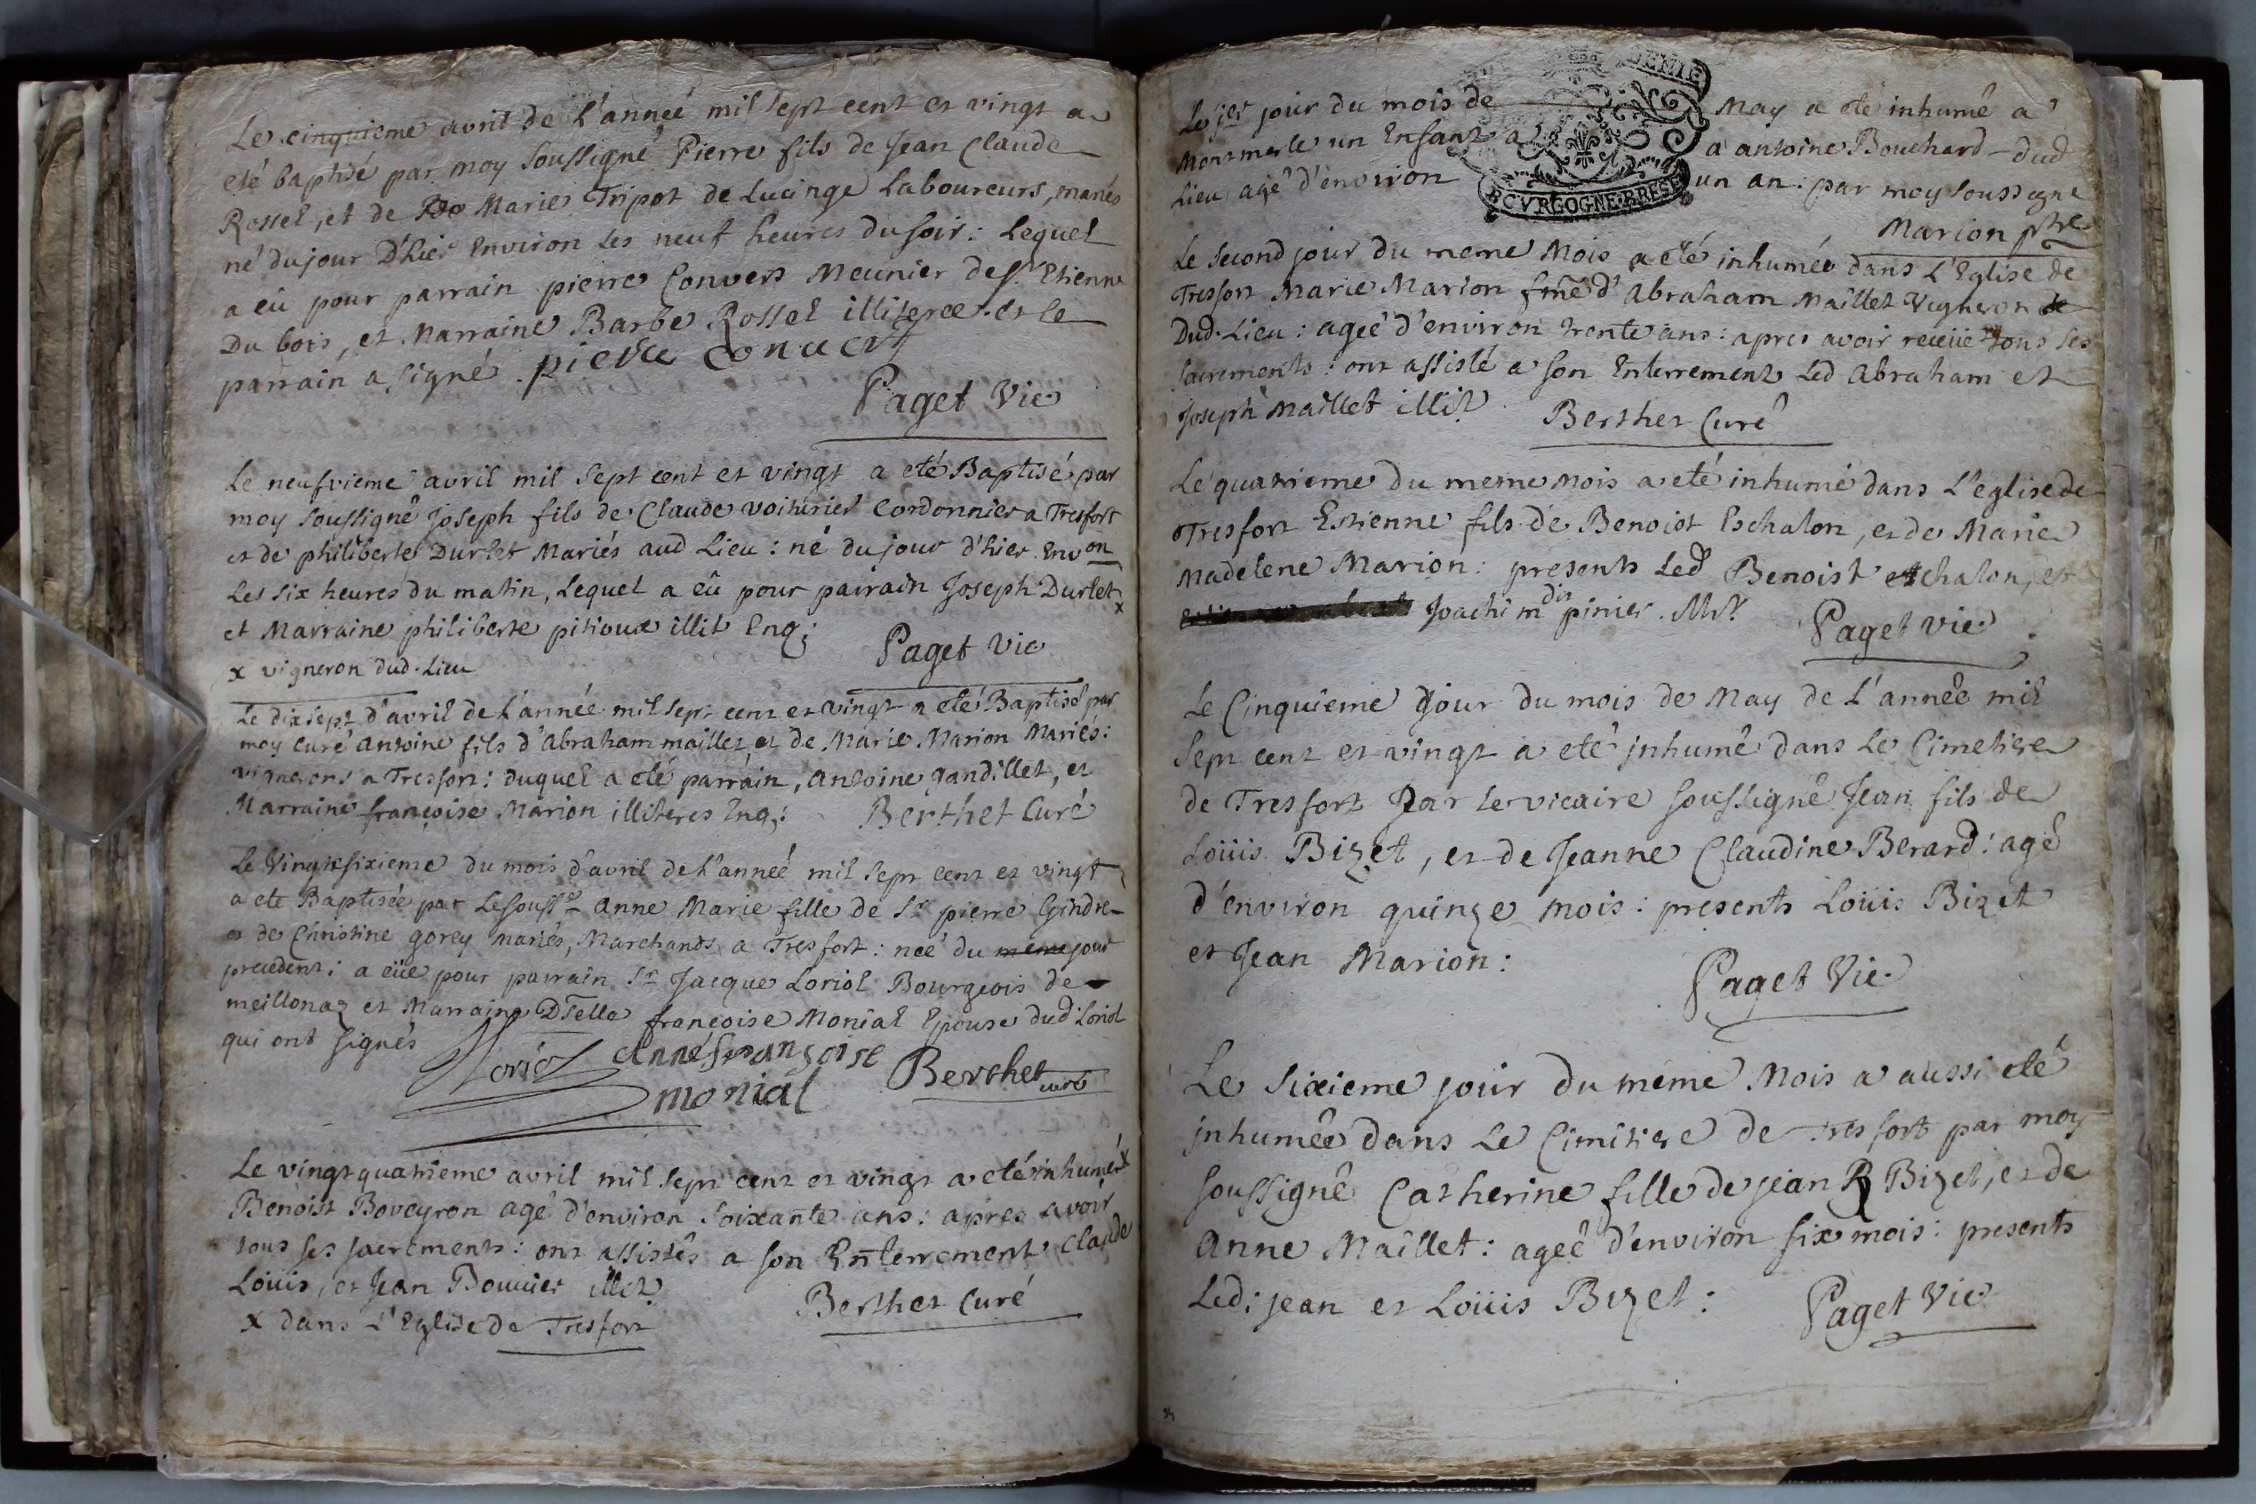 Le cinquieme avril de L'anneé mil sept cent et vingt a
eté baptisé par moy soussigné Pierre fils de Jean Claude
Rossel, et de Marie Tripot de Lucinge Laboureurs, mariés
né du jour D'hier Environ les neuf heures du soir: Lequel
a eû pour parrain pierre Convers Meunier de St Etienne
Du bois, et Marraine Barbe Rossel illiteree et le
parrain a signé. pierre convert
Paget Vic
Le neufvieme avril mil sept cent et vingt a eté Baptisé par
moy soussigné Joseph fils de Claude voiturier Cordonnier a Tresfort
et de philiberte Durlet Mariés aud Lieu: né du jour d'hier Env on
Les six heures du matin, Lequel a eû pour parrain Joseph Durlet x
et Marraine philiberte pitioux illit Enq;
Paget Vic
x vigneron dud. Lieu
Le dixsept d'avril de L'année mil sept cent et vingt a eté Baptisé par
moy curé antoine fils d'Abraham maillet et de Marie Marion Mariés:
vignerons a Tresfort: duquel a eté parrain, Antoine gandillet, et
Marraine françoise Marion illiteres Inq,: Berthet Curé
Le Vingtsixieme du mois d'avril de L'anneé mil sept cent et vingt
a ete Baptisée par Le souss.é Anne Marie fille de Sr pierre Gindre
et de Christine gorey mariés, Marchands a Tresfort: neé du meme jour
precedent: a eüe pour parrain Sr Jacque Loriol Bourgeois de
meillonaz et Marraine DTelle françoise Monial Epouse dud: Loriol
qui ont signés
Loriol anne françoise Berthet curé
monial
Le vingt quatrieme avril mil sept cent et vingt a eté inhumé x
Benoist Boveyron agé d'environ soixante ans: apres avoir
tous ses sacrements: ont assistés a son Enterrement Claude
Loüis, et Jean Bouuier illit
Berthet Curé
x dans L'Eglise de Tresfort
Le jer jour du mois de May a eté inhumé a
Montmerle un Enfant a a antoine Bouchard dud
Lieu agé d'environ un an: par moy soussigné
BOVRGOGNE·BRESE
Marion ptre
Le second jour du meme Mois a eté inhumée dans L'Eglise de
Tresfort Marie Marion fme d'Abraham Maillet Vigneron de
Dud. Lieu: ageé d'environ trente ans: apres avoir receüe tous ses
sacrements: ont assisté a son Enterrement Led Abraham et
Joseph Maillet illit
Berthet Curé
Le quatrieme du meme Mois a eté inhumé dans L'eglise de
Tresfort Estienne fils de Benoist Eschalon, et de Marie
Madelene Marion: presents Led Benoist etchalon, et
Joachim dis pinier.
Paget vic
Le Cinquieme Jour du mois de May de L'année mil
sept cent et vingt a eté jnhumé dans Le Cimetiere
de Tresfort Par Le vicaire soussigné Jean fils de
Loüis Bizet, et de Jeanne Claudine Berard: agé
d'environ quinze mois: presents Loüis Bizet
et Jean Marion:
Paget Vic
Le sixieme jour du meme Mois a aussi eté
jnhumée dans Le Cimitiere de Tresfort par moy
soussigné Catherine fille de jean Bizet, et de
Anne Maillet: ageé d'environ six mois: presents
Led: jean et Loüis Bizet:
Paget Vic